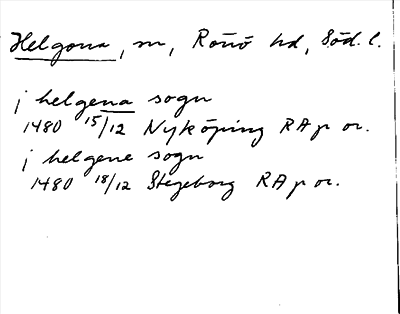 Helgona, sn, Rönö hd, Söd. l.
j helgena sogn
1480 15/12 Nyköping RA p or.
j helgene sogn
1480 18/12 Stegeborg RA p or.